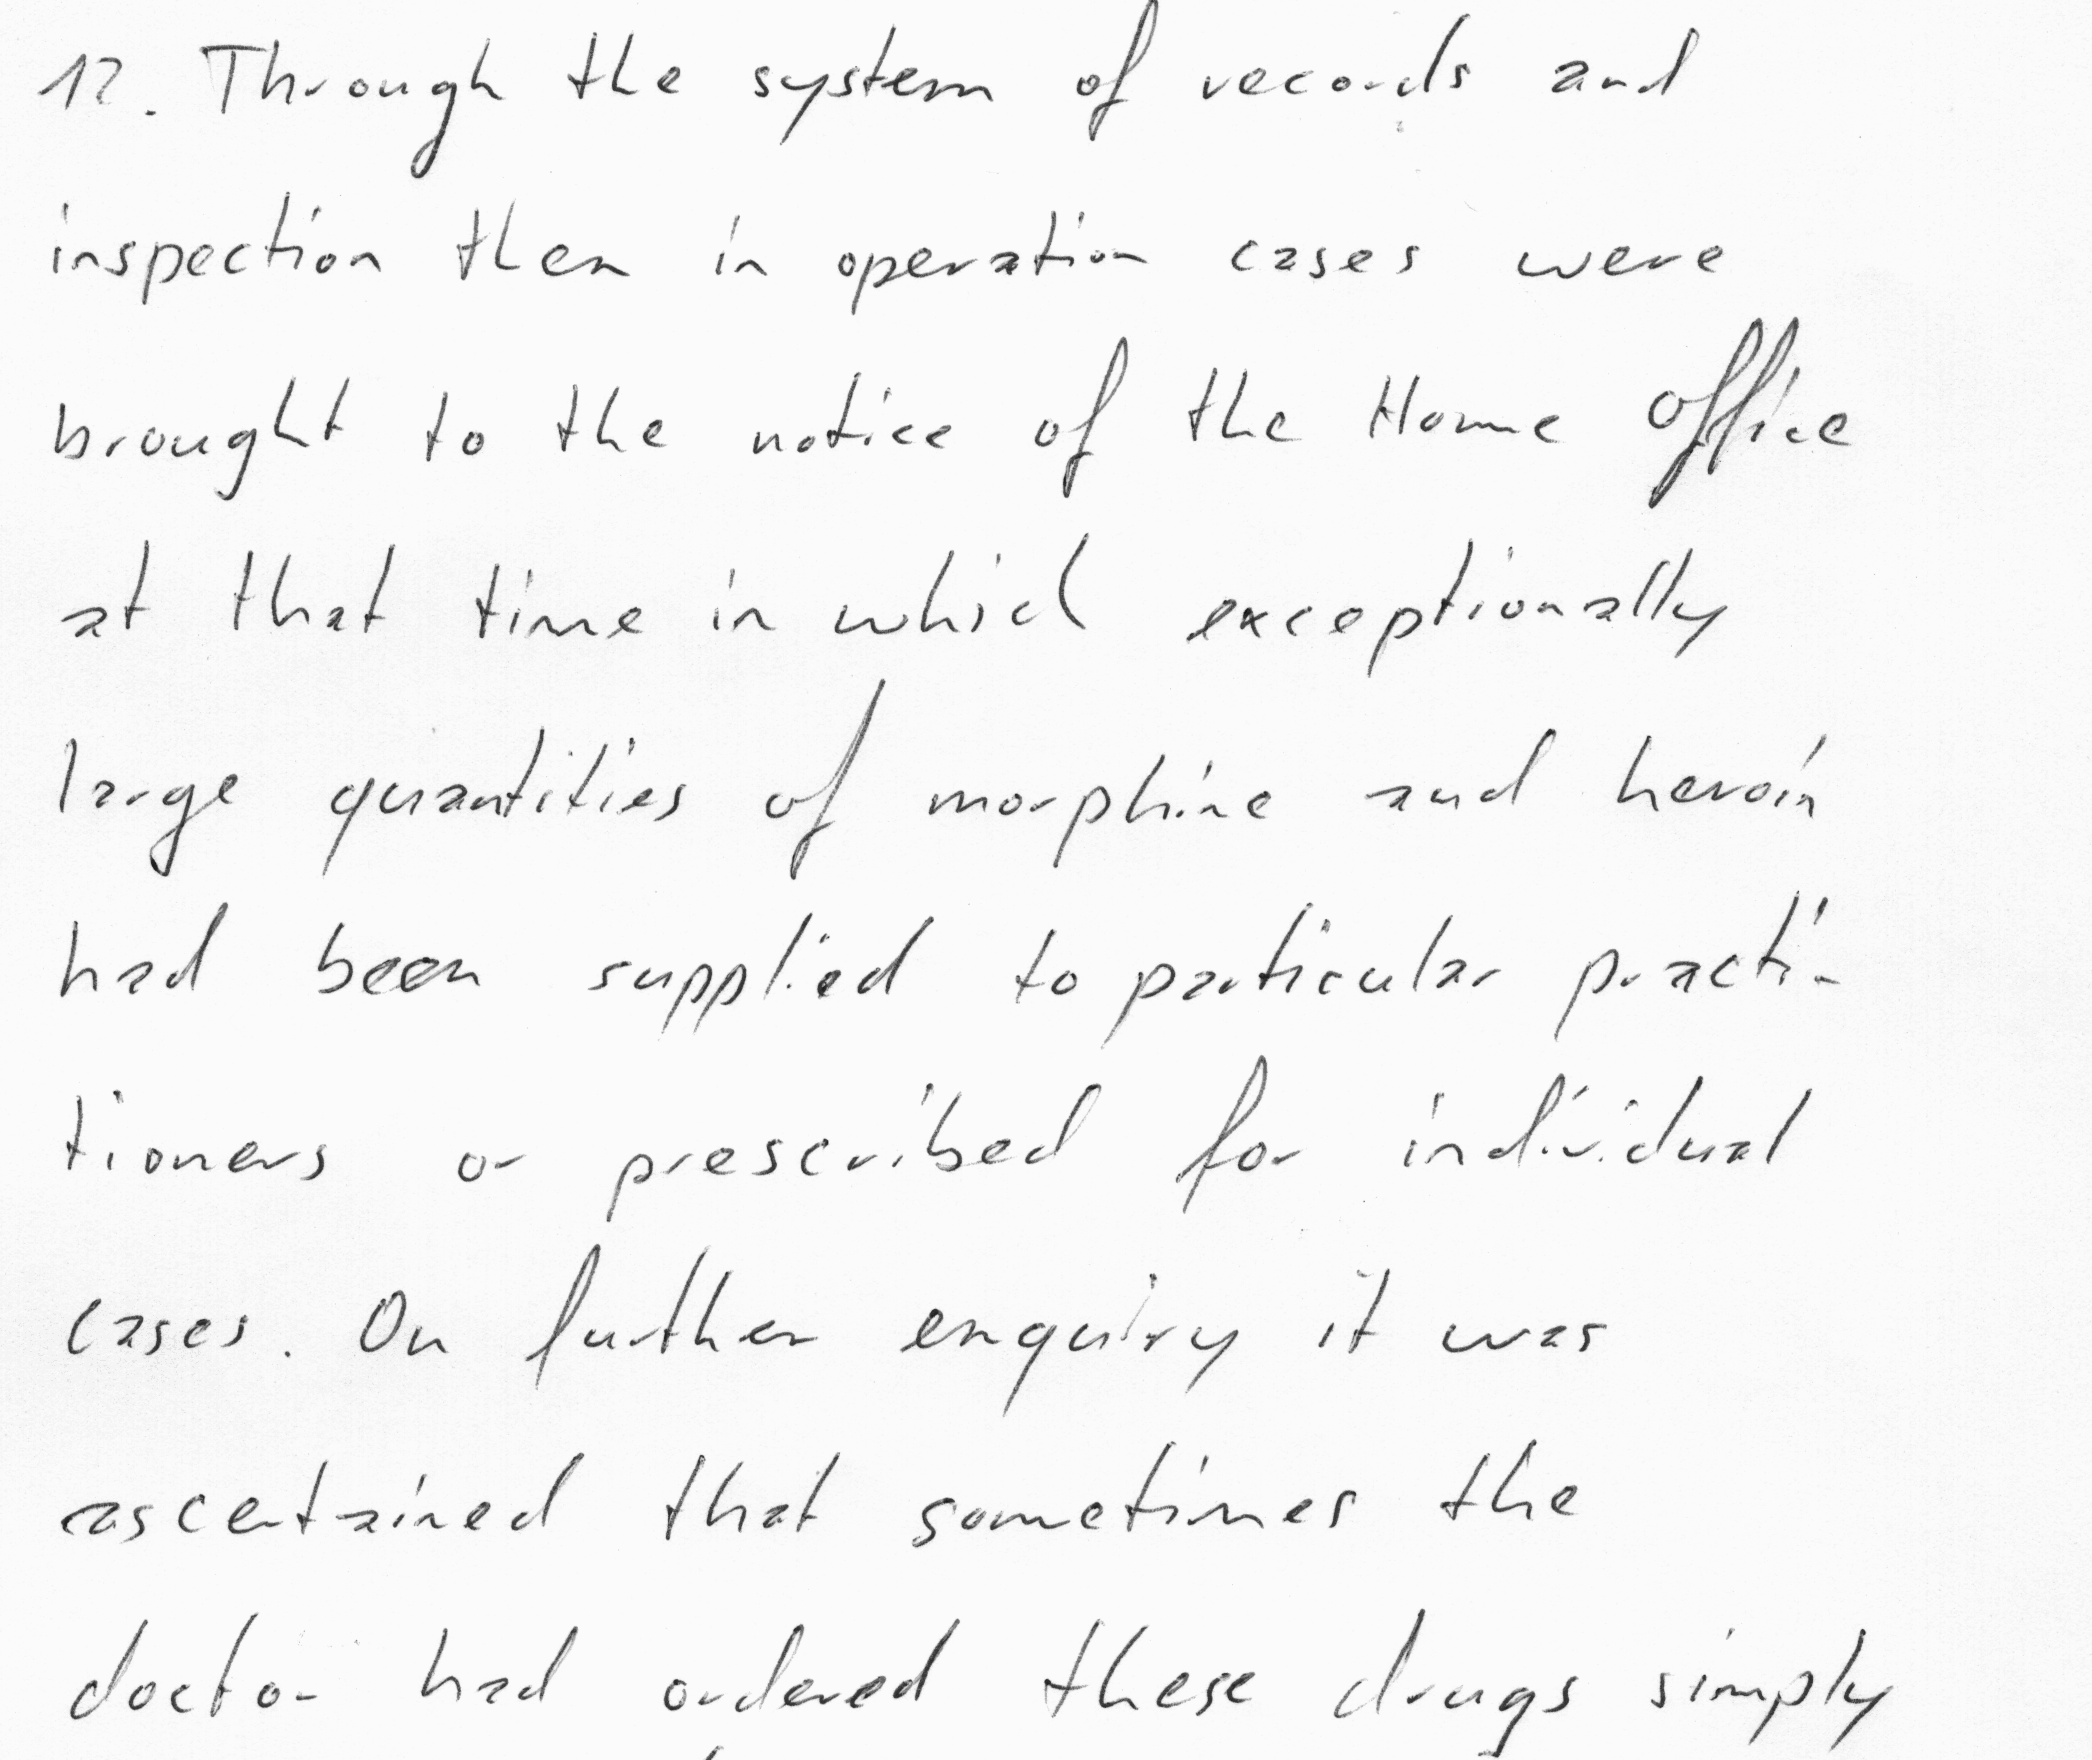 12. Through the system of records and
inspection then in operation cases were
brought to the notice of the Home Office
at that time in which exceptionally
large quantities of morphine and heroin
had been supplied to particular practi-
tioners or prescribed for individual
cases. On further enquiry it was
ascertained that sometimes the
doctor had ordered these drugs simply